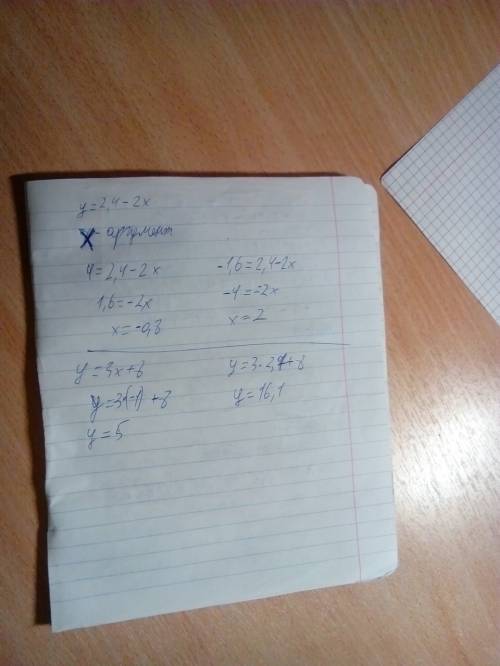 y=2,4-2x
x - аргумент
4=2,4-2x
1,6=-2x
x=-0,8
-1,6=2,4-2x
-4=-2x
x=2
y=3x+8
y=3·(-1)+8
y=5
y=3·2,7+8
y=16,1